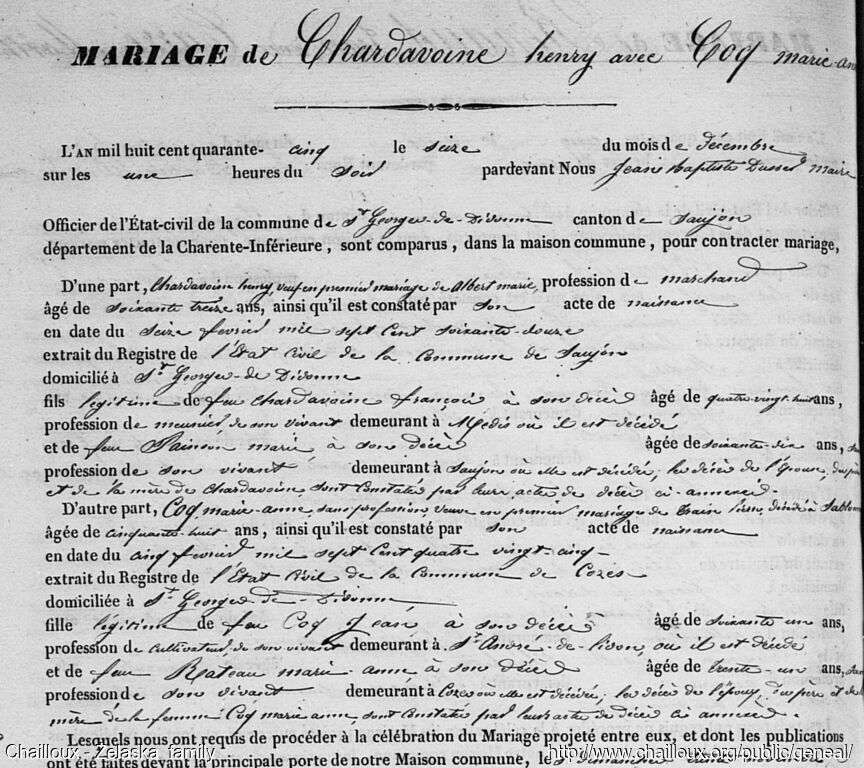 MARIAGE de Chardavoine henry avec Coq marie-an
L'AN mil huit cent quarante- cinq le seize du mois de décembre
sur les une heures du Soir pardevant Nous Jean Baptiste maire
Officier de l'État-civil de la commune de St Georges-de-Didonne canton de Saujon
département de la Charente-Inférieure, sont comparus, dans la maison commune, pour contracter mariage,
D'une part, Chardavoine henry, veuf en premier mariage de Albert marie, profession de marchand
âgé de soixante treize ans, ainsi qu'il est constaté par son acte de naissance
en date du seize fevrier mil sept cent soixante douze
extrait du Registre de l'État Civil de la Commune de Saujon
domicilié à St Georges-de Didonne
fils légitime de feu Chardavoine françois à son décès âgé de quatre-vingt-huit ans,
profession de meunier de son vivant demeurant à Medis où il est décédé
et de feue marie, à son décès âgée de soixante-dix ans,
profession de son vivant demeurant à Saujon où elle est décédée, les décès de l'épouse, du père
et de la mère de Chardavoine, sont Constatés par leurs actes de décès ci-annexés.
D'autre part, Coq marie-anne, sans profession, veuve en premier mariage de décédé à
âgée de cinquante-huit ans, ainsi qu'il est constaté par son acte de naissance
en date du cinq fevrier mil sept Cent quatre vingt-cinq-
extrait du Registre de l'État Civil de la Commune de Cozes
domiciliée à St Georges de Didonne
fille légitime de feu Coq Jean, à son décès âgé de soixante un ans,
profession de cultivateur, de son vivant demeurant à St André-de-lidon, où il est décédé
et de feue Rateau marie-anne, à son décès âgée de trente-un ans,
profession de son vivant demeurant à Cozes où elle est décédée; les décès de l'époux, du père et de la
mère de la femme Coq marie anne, sont Constatés par leurs actes de décès ci annexés.
Lesquels nous ont requis de procéder à la célébration du Mariage projeté entre eux, et dont les publications
ont été faites devant la principale porte de notre Maison commune, le dimanche novembre
Chailloux - Zelaska family http://www.chailloux.org/public/geneal/